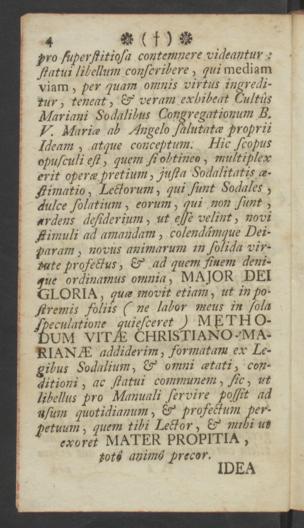 4 ❊ ( † ) ❊
pro superstitiosa contemnere videantur:
statui libellum conscribere, qui mediam
viam, per quam omnis virtus ingredi-
tur, teneat, & veram exhibeat Cultûs
Mariani Sodalibus Congregationum B.
V. Mariæ ab Angelo salutatæ proprii
Ideam, atque conceptum. Hic scopus
opusculi est, quem si obtineo, multiplex
erit operæ pretium, justa Sodalitatis æ-
stimatio, Lectorum, qui sunt Sodales,
dulce solatium, eorum, qui non sunt,
ardens desiderium, ut esse velint, novi
stimuli ad amandam, colendámque Dei-
param, novus animarum in solida vir-
tute profectus, & ad quem finem deni-
que ordinamus omnia, MAJOR DEI
GLORIA, quæ movit etiam, ut in po-
stremis foliis (ne labor meus in sola
speculatione quiesceret) METHO-
DUM VITÆ CHRISTIANO-MA-
RIANÆ addiderim, formatam ex Le-
gibus Sodalium, & omni ætati, con-
ditioni, ac statui communem, sic, ut
libellus pro Manuali servire possit ad
usum quotidianum, & profectum per-
petuum, quem tibi Lector, & mihi ut
exoret MATER PROPITIA,
totô animô precor.
IDEA